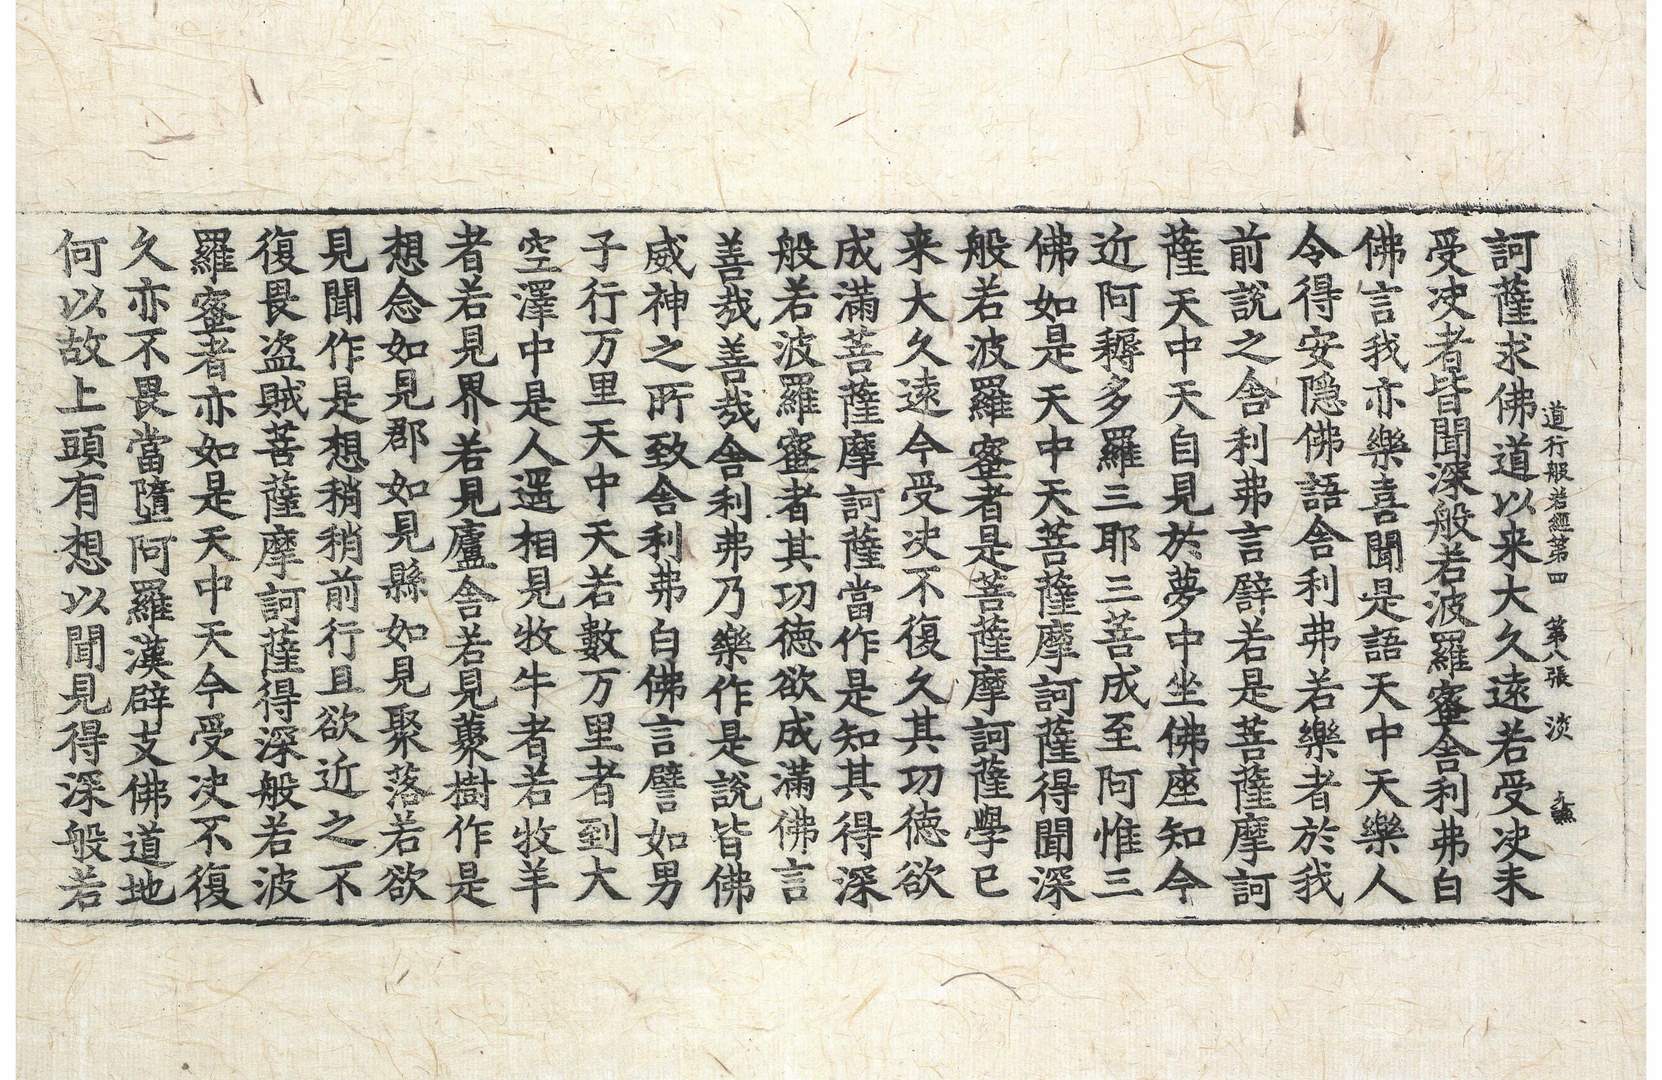 道行般若經第四 第八張 淡
訶薩求佛道以来大久遠若受决未
受决者皆聞深般若波羅蜜舍利弗白
佛言我亦樂喜聞是語天中天樂人
令得安隱佛語舍利弗若樂者於我
前說之舍利弗言譬若是菩薩摩訶
薩天中天自見於夢中坐佛座知今
近阿耨多羅三耶三菩成至阿惟三
佛如是天中天菩薩摩訶薩得聞深
般若波羅蜜者是菩薩摩訶薩學已
来大久遠今受决不復久其功德欲
成滿菩薩摩訶薩當作是知其得深
般若波羅蜜者其功德欲成滿佛言
善哉善哉舍利弗乃樂作是說皆佛
威神之所致舍利弗白佛言譬如男
子行万里天中天若數万里者到大
空澤中是人遥相見牧牛者若牧羊
者若見界若見廬舍若見藂樹作是
想念如見郡如見縣如見聚落若欲
見聞作是想稍稍前行且欲近之不
復畏盗賊菩薩摩訶薩得深般若波
羅蜜者亦如是天中天今受决不復
久亦不畏當墮阿羅漢辟支佛道地
何以故上頭有想以聞見得深般若